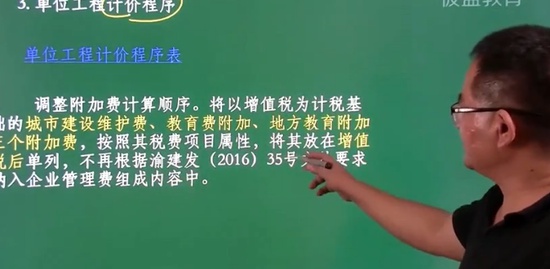 3. 单位工程计价程序
单位工程计价程序表
调整附加费计算顺序。将以增值税为计税基
的城市建设维护费、教育费附加、地方教育附加
三个附加费，按照其税费项目属性，将其放在增值
税后单列，不再根据渝建发（2016）35号 要求
纳入企业管理费组成内容中。
教育